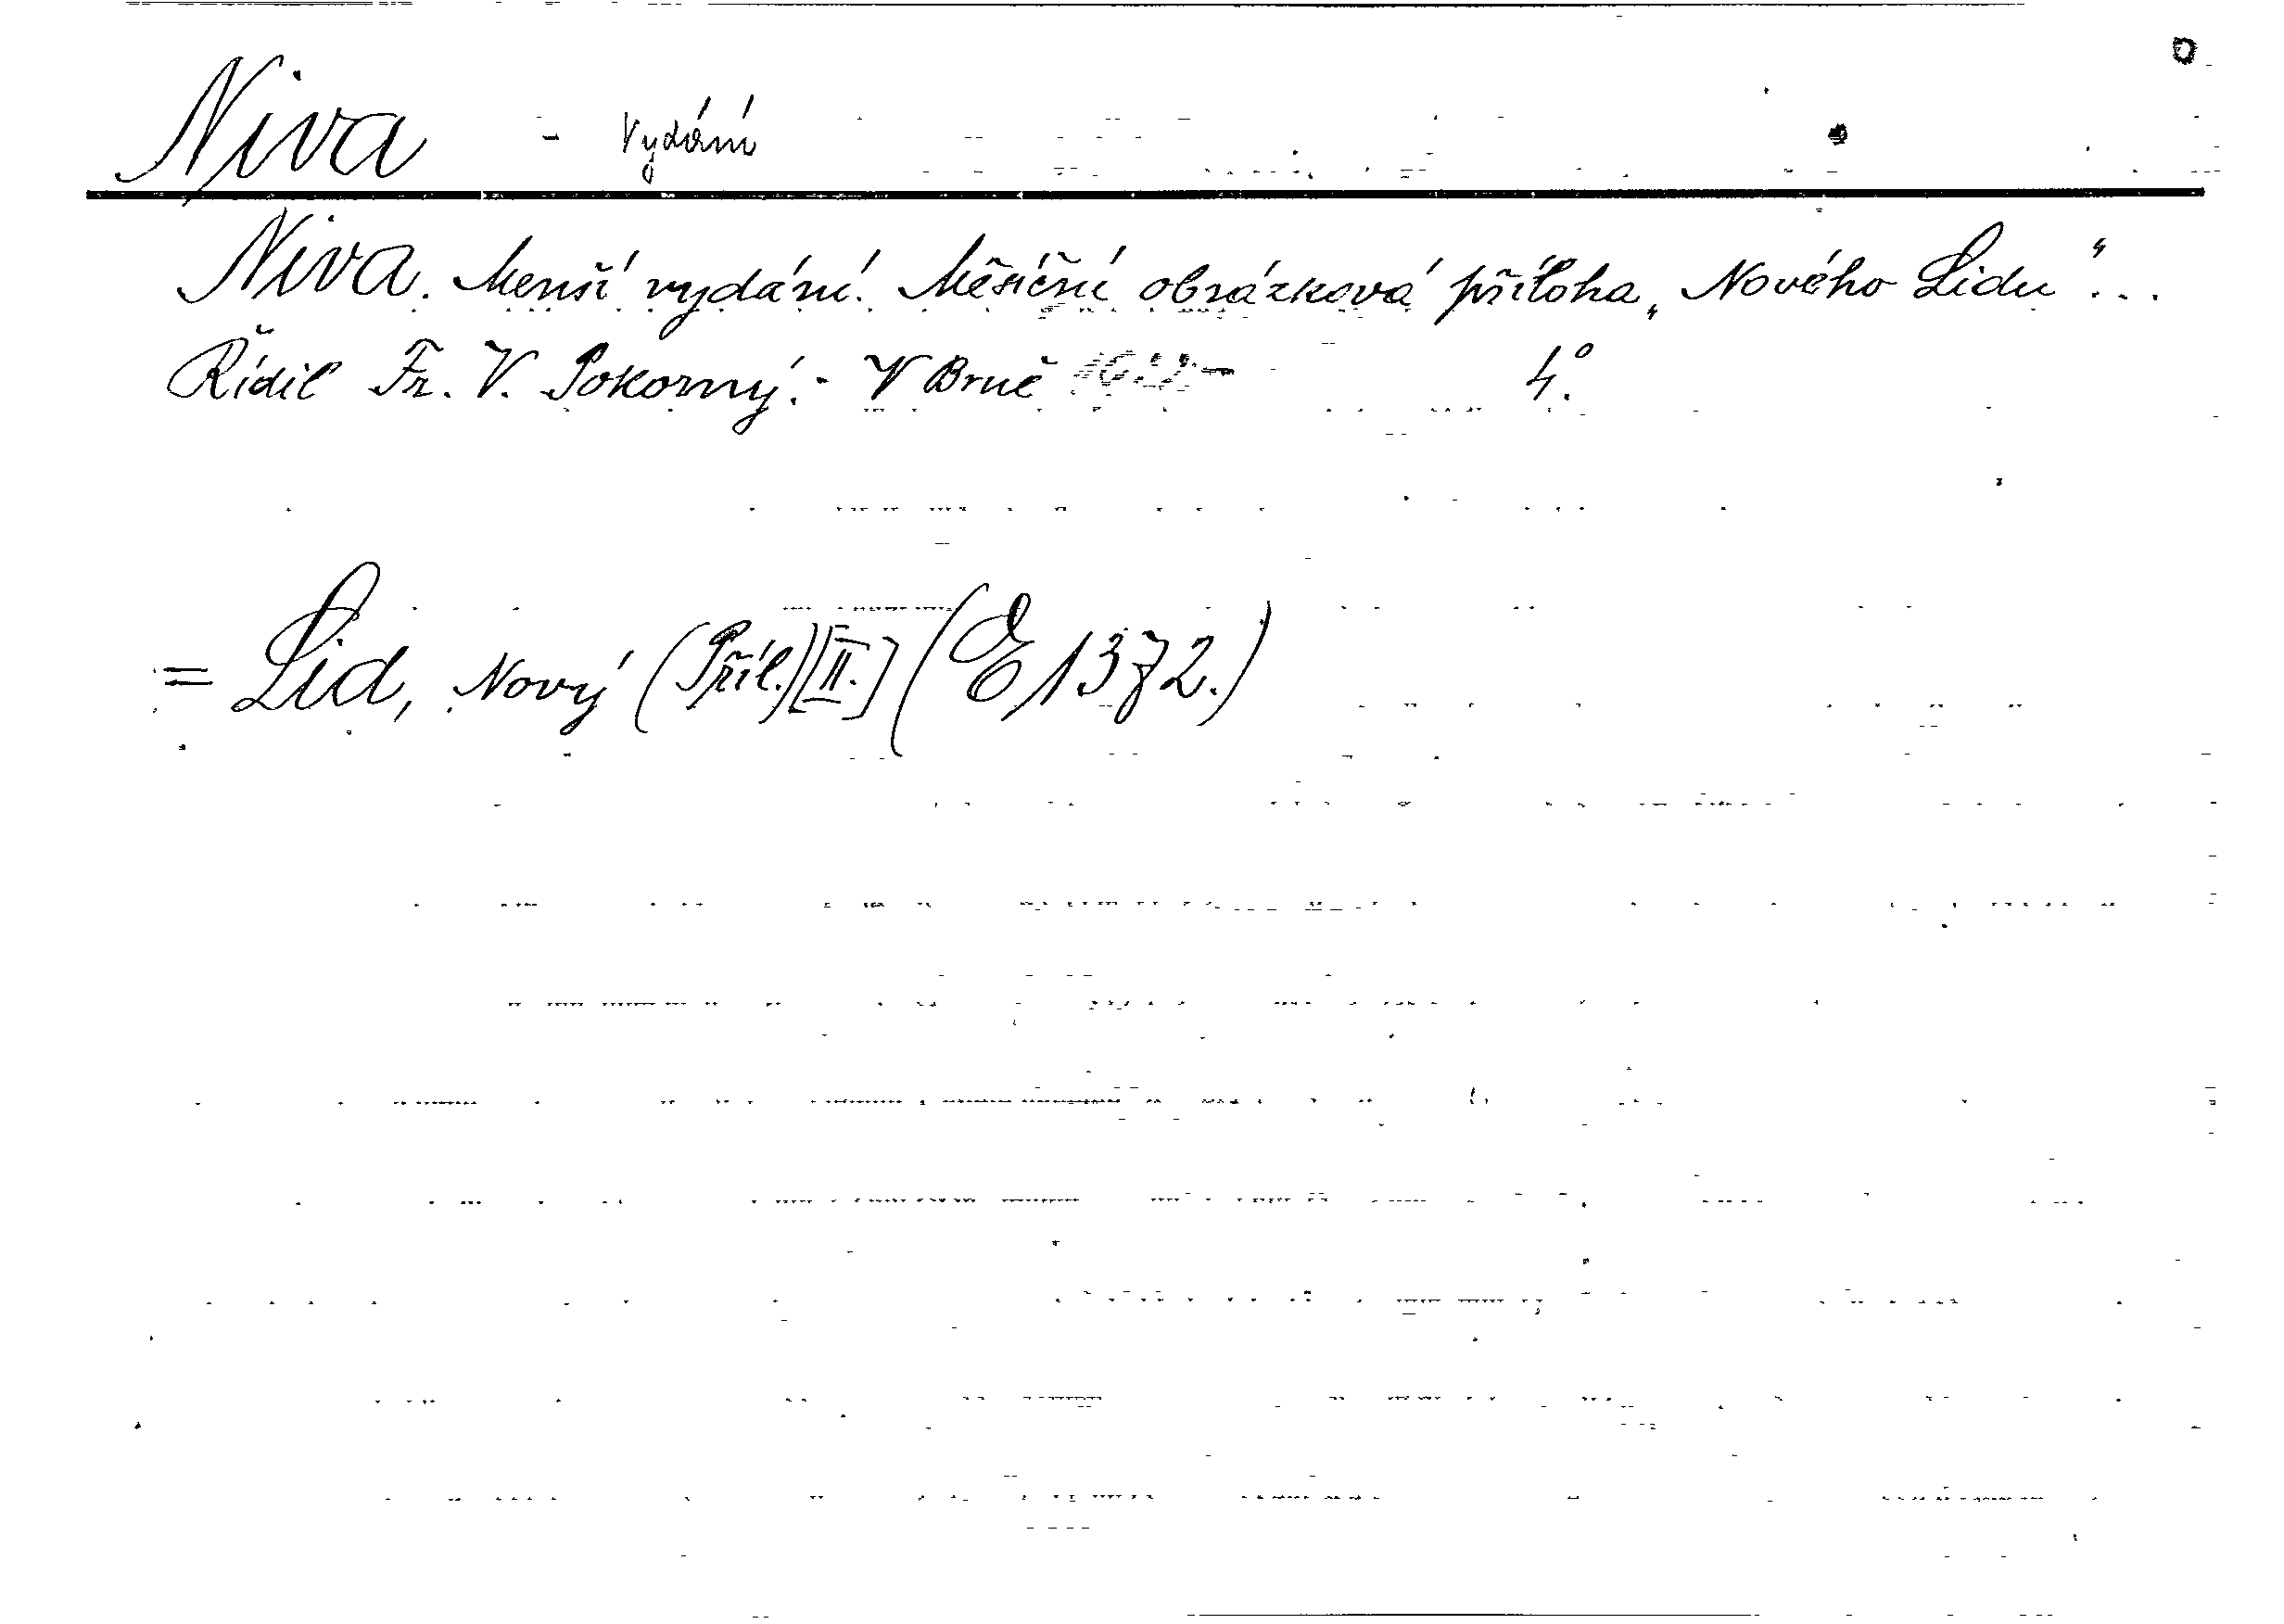 Niva - Vydání
Niva. Menší vydání. Měsíční obrázková příloha „Nového Lidu“...
Řídil Fr. V. Pokorný.- V Brně 4°.
= Lid, Nový (Příl.)[II.] (E 1372.)